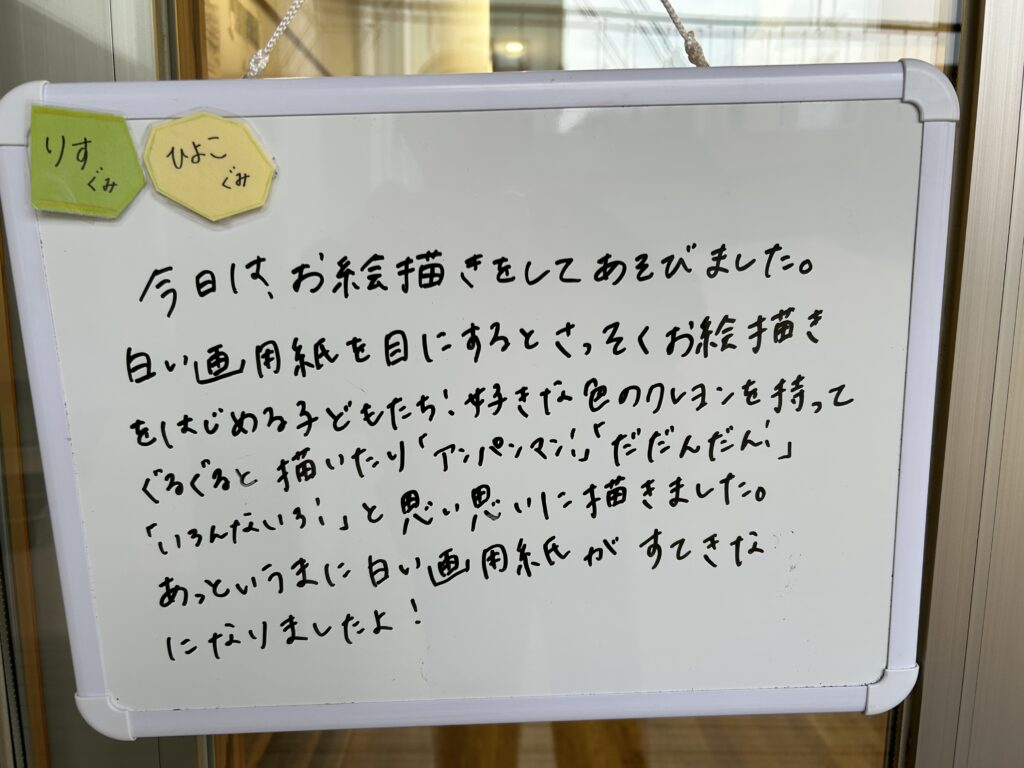 りす
ぐみ
ひよこ
ぐみ
今日は、お絵描きをしてあそびました。
白い画用紙を目にするとさっそくお絵描き
をはじめる子どもたち!好きな色のクレヨンを持って
ぐるぐると描いたり「アンパンマン!」「だだんだん!」
「いろんないろ!」と思い思いに描きました。
あっというまに白い画用紙がすてきな
になりましたよ!